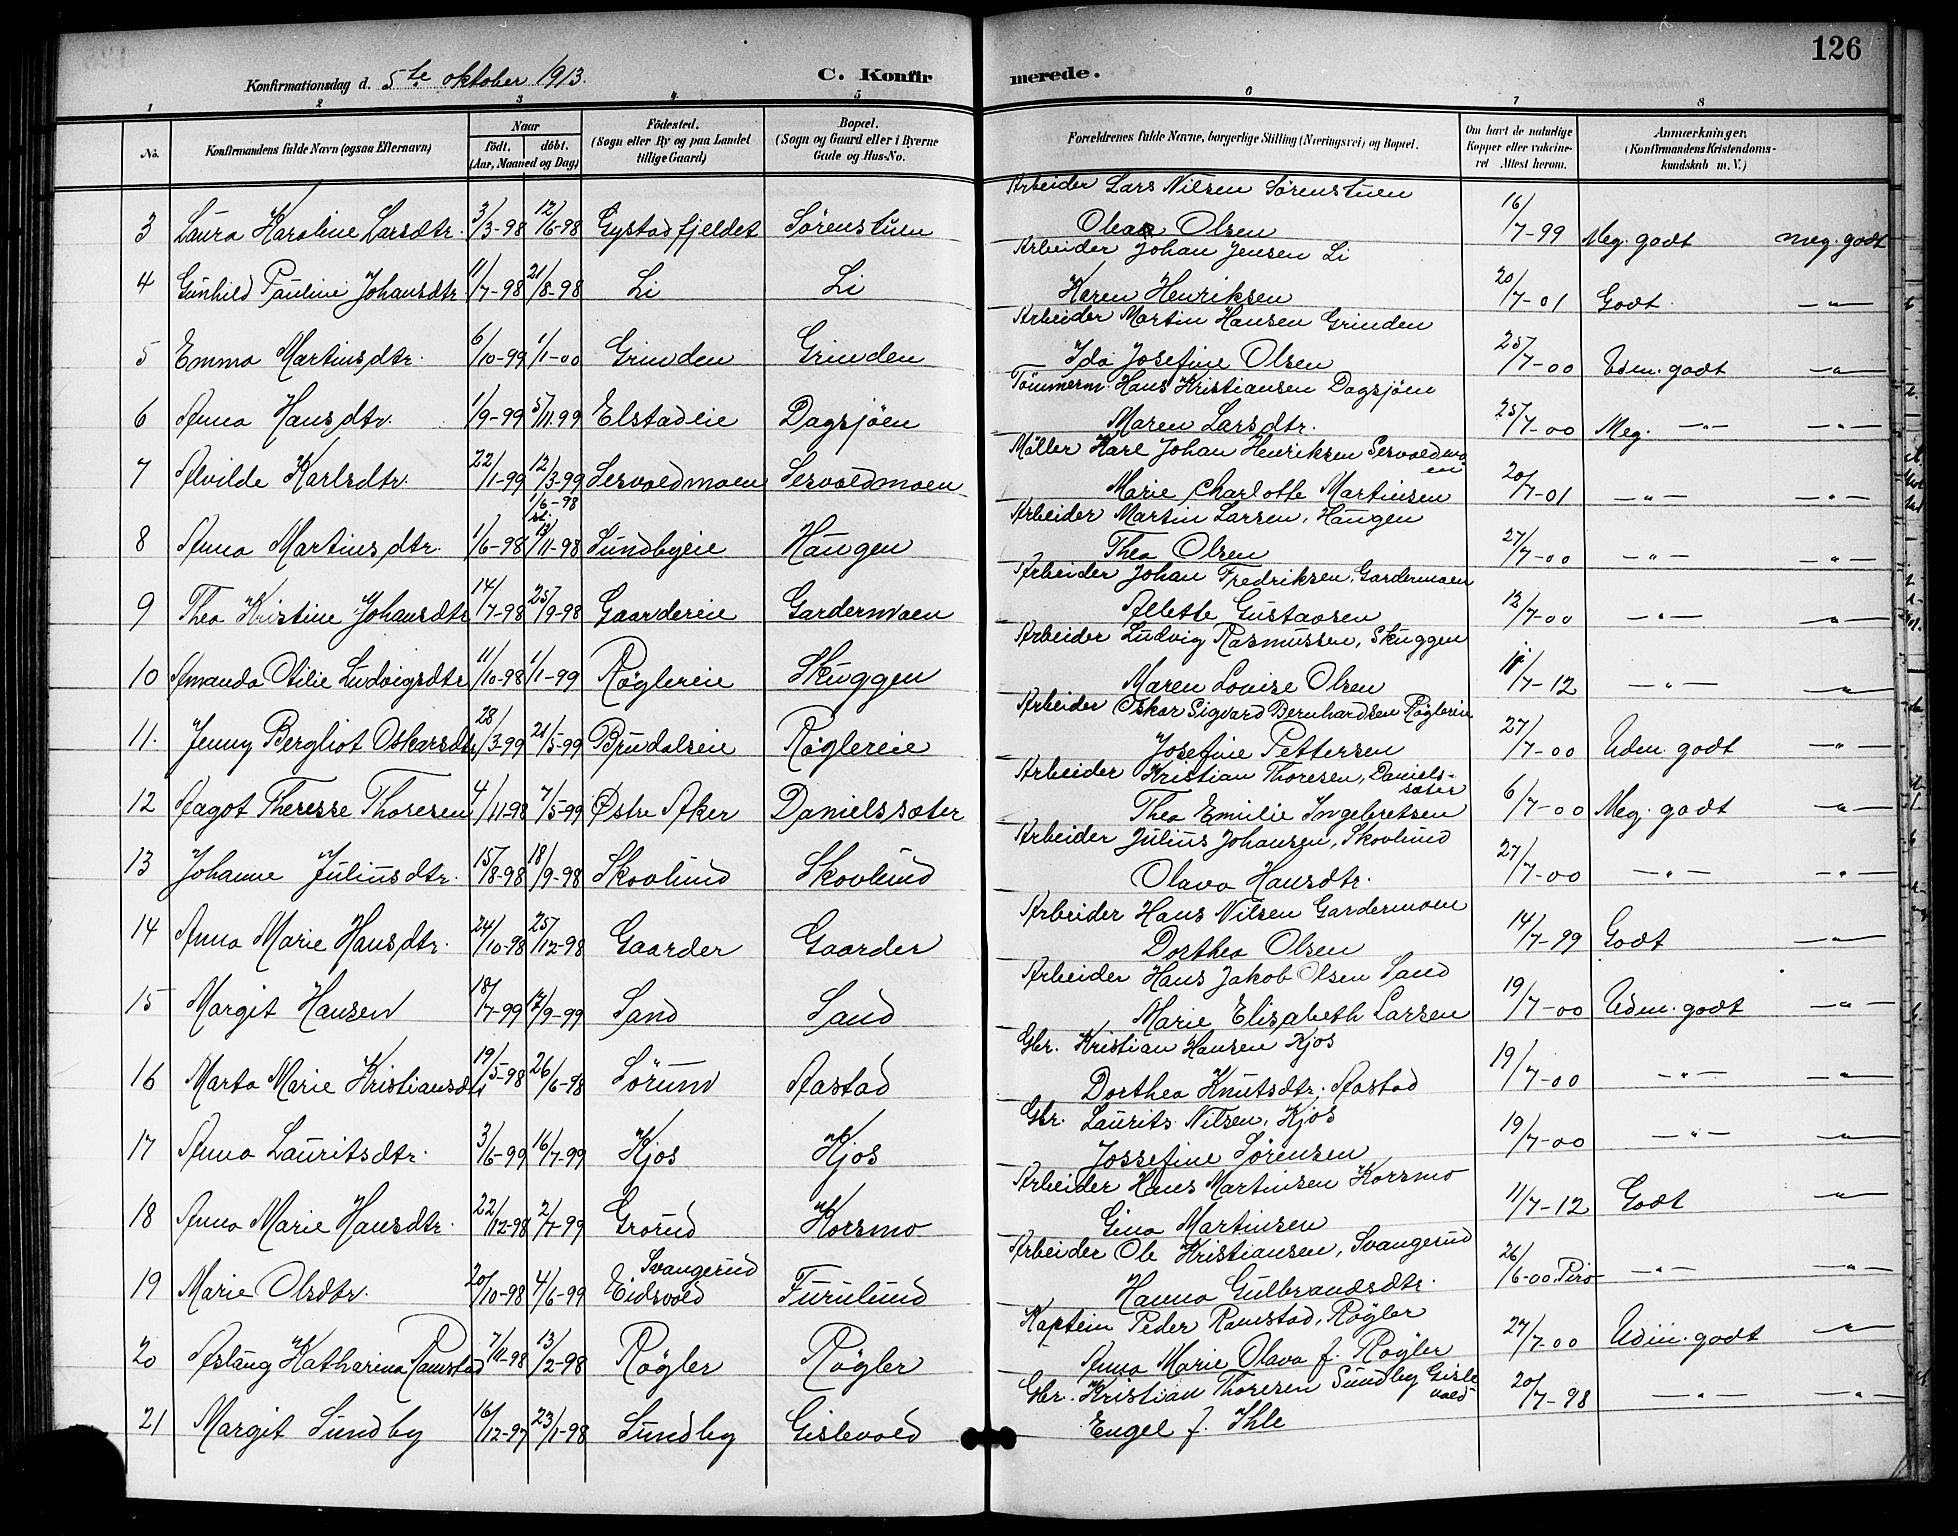 126
Konfirmationsdag d. 5te oktober 1913. C. Konfirmerede.
1 2 3 4 5 6 7 8
No. Konfirmandens fulde Navn (ogsaa Efternavn) Naar født. døbt. (Aar, Maaned og Dag) Fødested. (Sogn eller By og paa Landet tillige Gaard) Bopæl. (Sogn og Gaard eller i Byerne Gade og Hus-No. Forældrenes fulde Navne, borgerlige Stilling (Næringsvei) og Bopæl. Om havt de naturlige Kopper eller vaccineret Attest herom. Anmærkninger. (Konfirmandens Kristendomskundskab m. V.)
Arbeider Lars Nilsen Sørenstuen
3 Laura Karoline Larsdtr. 3/3-98 12/6-98 Gystadfjeldet Sørenstuen Olea Olsen 16/7-99 Meg. godt meg. godt
Arbeider Johan Jensen Li
4 Gunhild Pauline Johansdtr 11/7-98 21/8-98 Li Li Karen Henriksen 20/7-01 Godt —"—
Arbeider Martin Hansen Grinden
5 Emma Martinsdtr. 6/10-99 1/1-00 Grinden Grinden Ida Josefine Olsen 25/7-00 Udm. godt —"—
Tömmerm. Hans Kristiansen Dagsjøen
6 Anna Hansdtr. 1/9-99 5/11-99 Elstadeie Dagsjøen Maren Larsdtr. 25/7-00 Meg. —"— —"—
Møller Karl Johan Henriksen Sesvoldmoen
7 Alvilde Karlsdtr. 22/1-99 12/3-99 Sesvoldmoen Sesvoldmoen Marie Charlotte Martinsen 20/7-01 —"— —"—
1/6-98
Arbeider Martin Larsen, Haugen
8 Anna Martinsdtr. 1/6-98 13/11-98 Sundbyeie Haugen Thea Olsen 27/7-00 —"— —"—
Arbeider Johan Fredriksen, Gardermoen
9 Thea Kristine Johansdtr 14/7-98 25/9-98 Gaardereie Gardermoen Allette Gustavsen 12/7-00 —"— —"—
Arbeider Ludvig Rasmussen, Skuggen
10 Amanda Otilie Ludvigsdtr 11/10-98 1/1-99 Røglereie Skuggen Maren Lovise Olsen 11/7-12 —"— —"—
Arbeider Oskar Sigvard Bernhardsen Røglereie
11. Jenny Bergliot Oskarsdtr 28/3-99 21/5-99 Brudalseie Røglereie Josefine Pettersen 27/7-00 Udm. godt —"—
Arbeider Kristian Thoresen, Danielssæter
12 Aagot Theresse Thoresen 4/11-98 7/5-99 Østre Aker Danielssæter Thea Emilie Ingebretsen 6/7-00 Meg. godt —"—
Arbeider Julius Johansen, Skovlund
13 Johanne Juliusdtr. 15/8-98 18/9-98 Skovlund Skovlund Olava Hansdtr. 27/7-00 —"— —"—
Arbeider Hans Nilsen Gardermoen
14 Anna Marie Hansdtr. 24/10-98 25/12-98 Gaarder Gaarder Dorthea Olsen 14/7-99 Godt —"—
Arbeider Hans Jakob Olsen Sand
15 Margit Hansen 18/7-99 17/9-99 Sand Sand Marie Elisabeth Larsen 19/7-00 Udm. godt —"—
Gbr. Kristian Hansen Kjos
16 Marta Marie Kristiansdtr 19/5-98 26/6-98 Sörum Aastad Dorthea Knutsdtr, Aastad 19/7-00 —"— —"—
Gbr. Laurits Nilsen, Kjos
17 Anna Lauritsdtr. 3/6-99 16/7-99 Kjos Kjos Jossefine Sørensen 19/7-00 —"— —"—
Arbeider Hans Martinsen Korsmo
18 Anna Marie Hansdtr. 22/12-98 2/7-99 Grorud Korsmo Gina Martinsen 11/7-12 Godt —"—
Arbeider Ole Kristiansen, Svangerud
19 Marie Olsdtr. 20/10-98 4/6-99 Svangerud Eidsvold Furulund Hanna Gulbrandsdtr. 26/6-00 —"— —"—
Kaptein Peder Ramstad, Røgler
20 Aslaug Katharina Ramstad 7/11-98 13/12-98 Røgler Røgler Anna Marie Olava f. Røgler 27/7-00 Udm. godt —"—
Gbr. Kristian Thoresen Sundby Gislevold
21 Margit Sundby 16/12-97 23/1-98 Sundby Gislevold Engel f. Ihle 20/7-98 —"— —"—